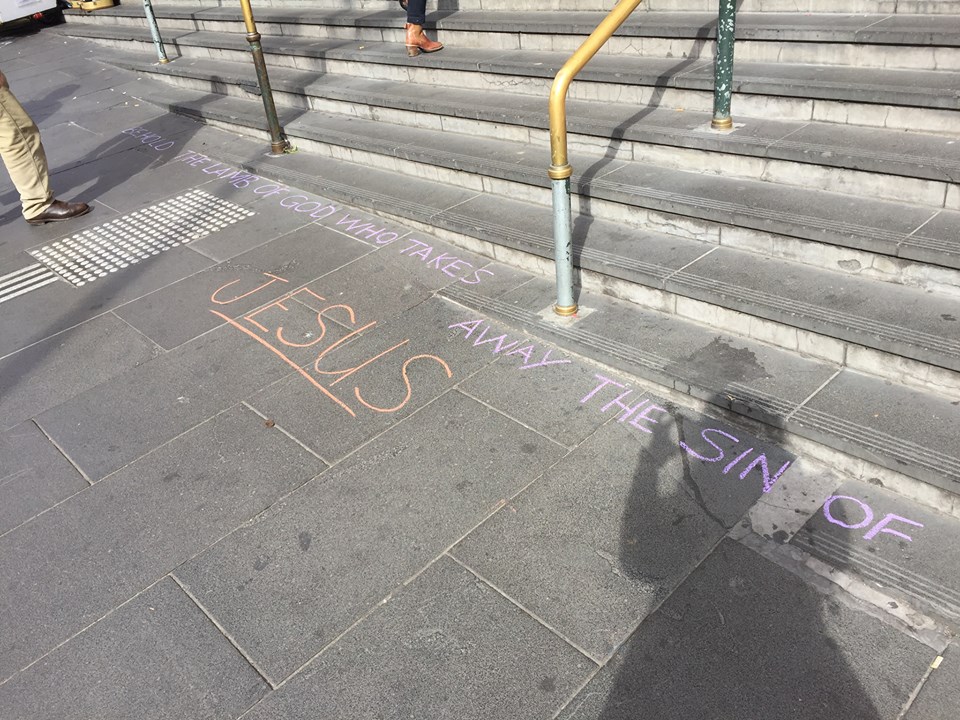 BEHOLD THE LAMB OF GOD WHO TAKES AWAY THE SIN OF
JESUS